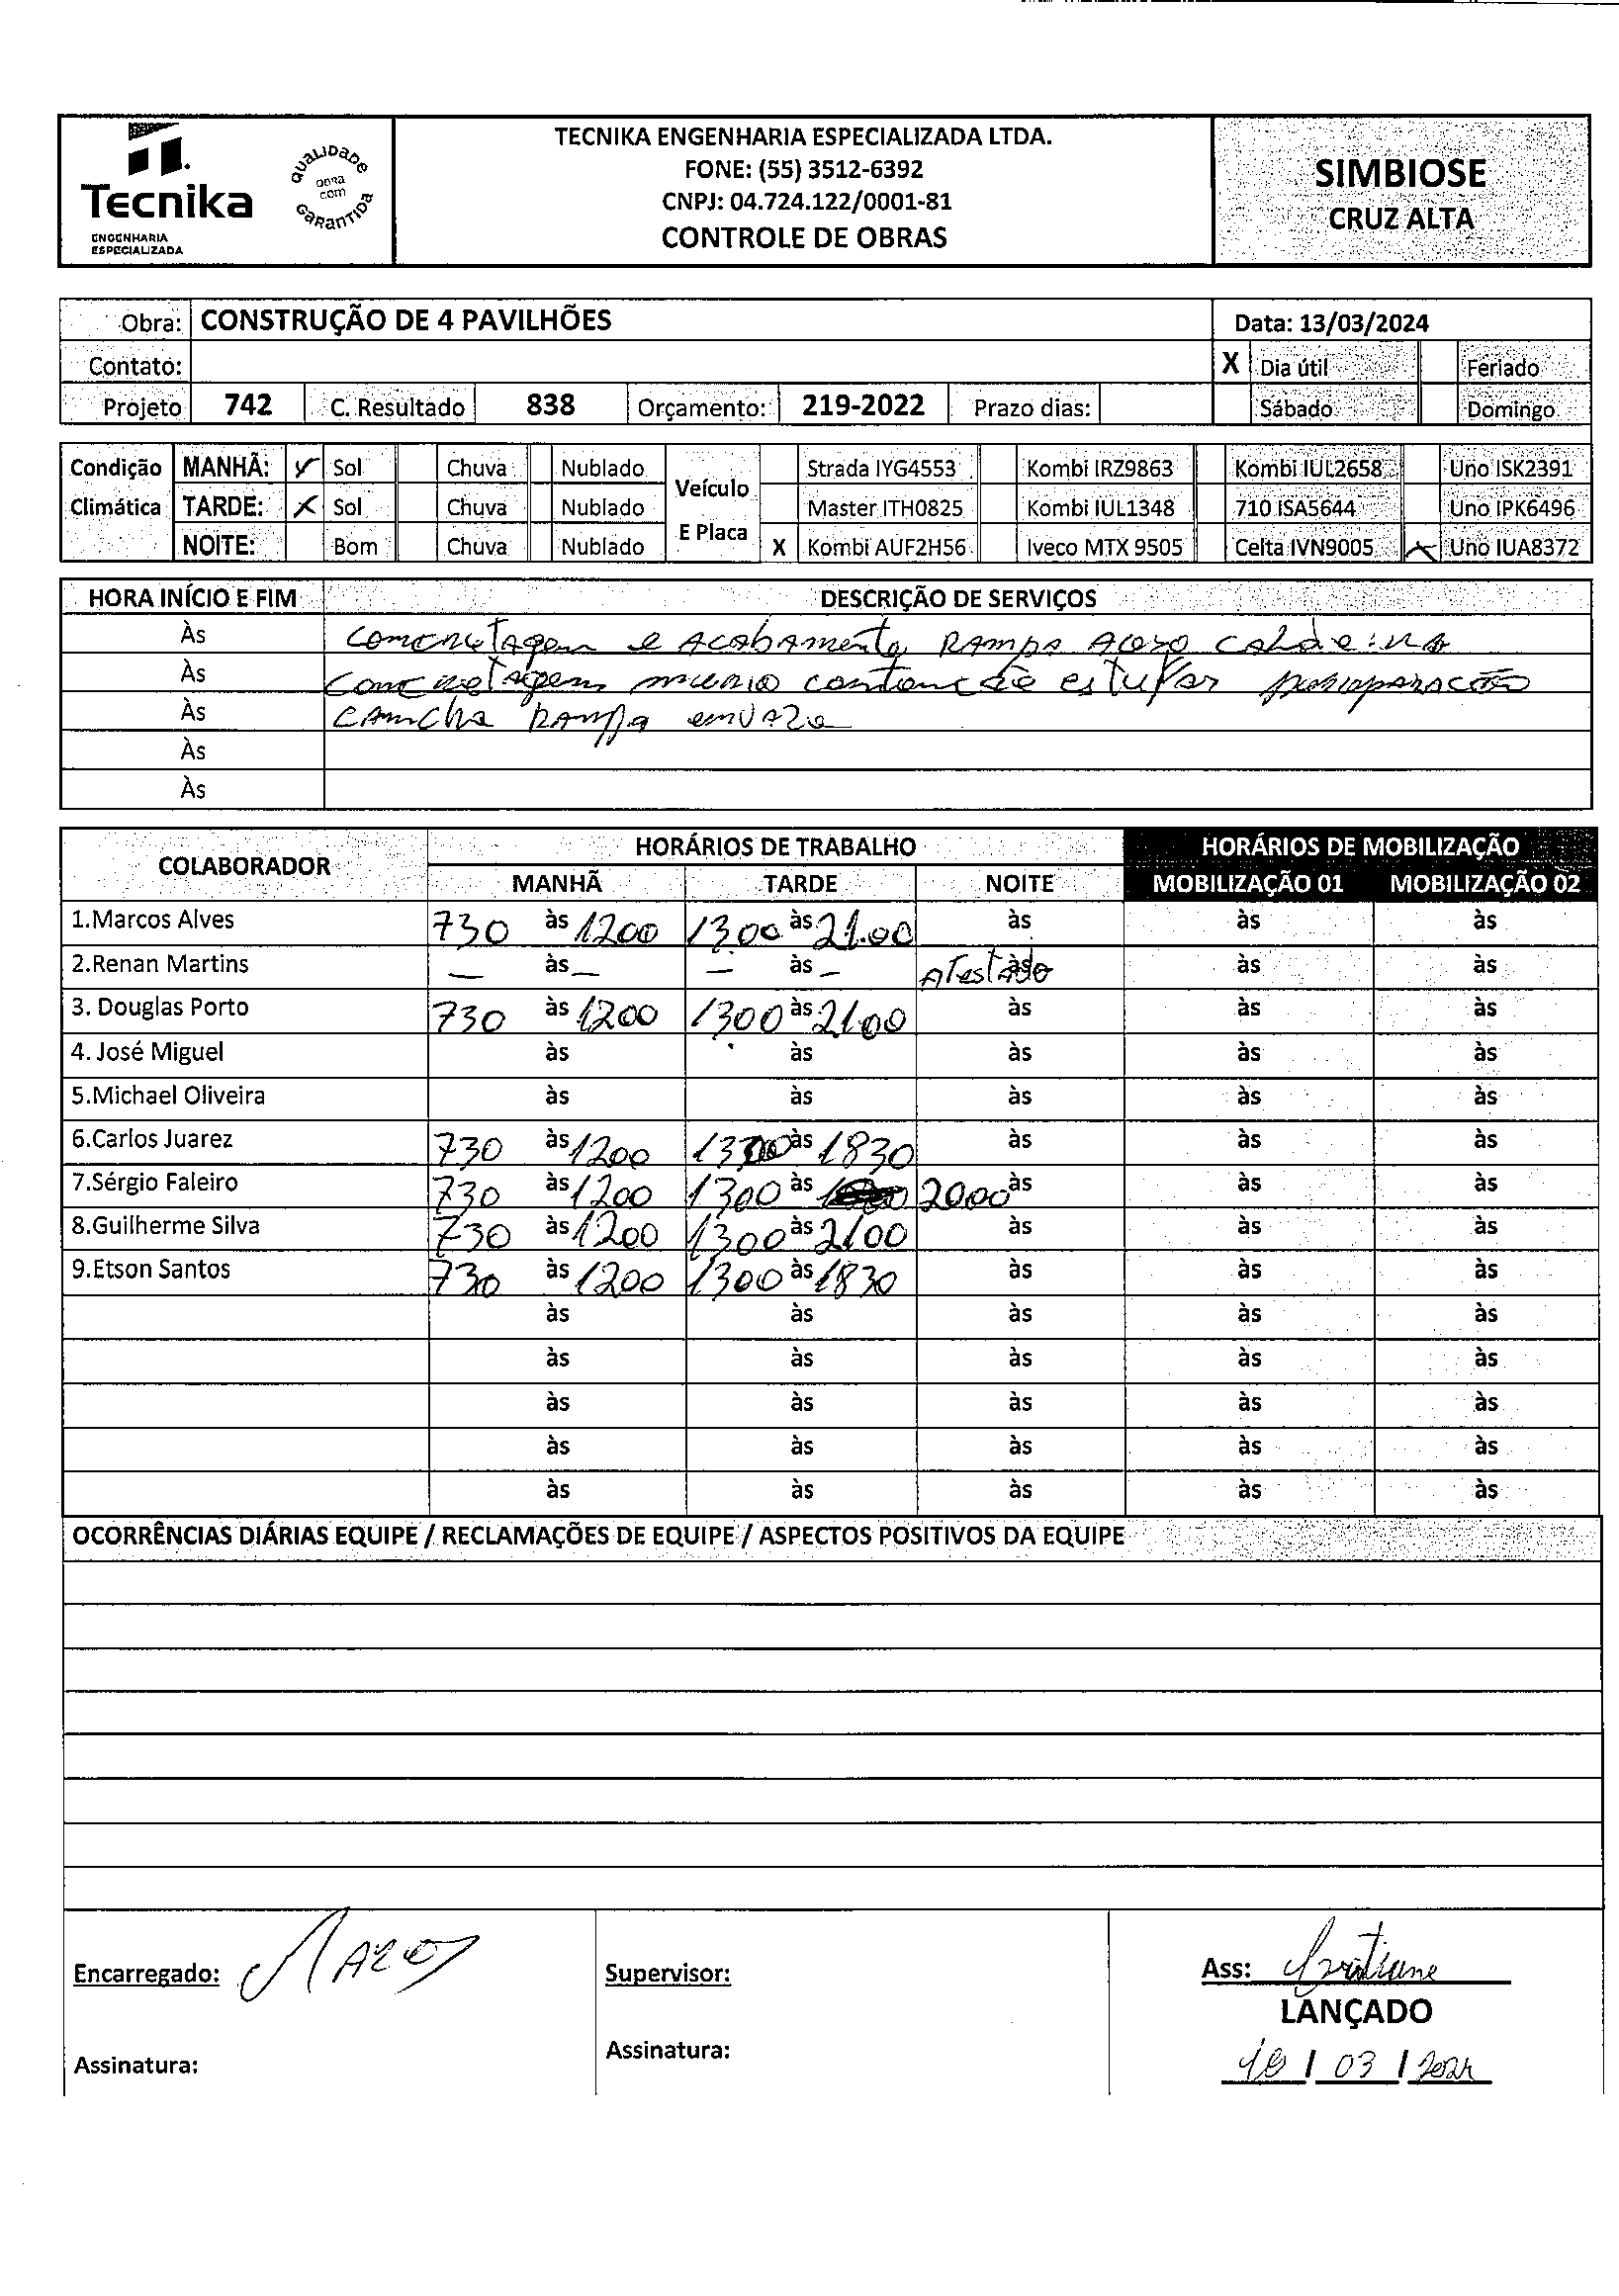 Tecnika
ENGENHARIA
ESPECIALIZADA
QUALIDADE
obra
com
GARANTIDA
TECNIKA ENGENHARIA ESPECIALIZADA LTDA.
FONE: (55) 3512-6392
CNPJ: 04.724.122/0001-81
CONTROLE DE OBRAS
SIMBIOSE
CRUZ ALTA
Obra: CONSTRUÇÃO DE 4 PAVILHÕES Data: 13/03/2024
Contato: X Dia útil Feriado
Projeto 742 C. Resultado 838 Orçamento: 219-2022 Prazo dias: Sábado Domingo
Condição MANHÃ: Sol Chuva Nublado Veículo Strada IYG4553 Kombi IRZ9863 Kombi IUL2658 Uno ISK2391
Climática TARDE: X Sol Chuva Nublado Master ITH0825 Kombi IUL1348 710 ISA5644 Uno IPK6496
NOITE: Bom Chuva Nublado E Placa X Kombi AUF2H56 Iveco MTX 9505 Celta IVN9005 X Uno IUA8372
HORA INÍCIO E FIM DESCRIÇÃO DE SERVIÇOS
Às Concretagem e Acabamento Rampa
Às Concretagem muro contenção estufas preparação
Às cancha Rampa envaze
Às
Às
COLABORADOR HORÁRIOS DE TRABALHO HORÁRIOS DE MOBILIZAÇÃO
MANHÃ TARDE NOITE MOBILIZAÇÃO 01 MOBILIZAÇÃO 02
1.Marcos Alves 730 às 1200 1300 às 21.00 às às às
2.Renan Martins — às — — às — Atestado às às às
3. Douglas Porto 730 às 1200 1300 às 21.00 às às às
4. José Miguel às às às às às
5.Michael Oliveira às às às às às
6.Carlos Juarez 730 às 1200 1300 às 1830 às às às
7.Sérgio Faleiro 730 às 1200 1300 às 2000 às às às
8.Guilherme Silva 730 às 1200 1300 às 2100 às às às
9.Etson Santos 730 às 1200 1300 às 1830 às às às
às às às às às
às às às às às
às às às às às
às às às às às
às às às às às
OCORRÊNCIAS DIÁRIAS EQUIPE / RECLAMAÇÕES DE EQUIPE / ASPECTOS POSITIVOS DA EQUIPE
Encarregado: Supervisor: Ass: Cristiane
LANÇADO
Assinatura: Assinatura: 18 / 03 / 2024